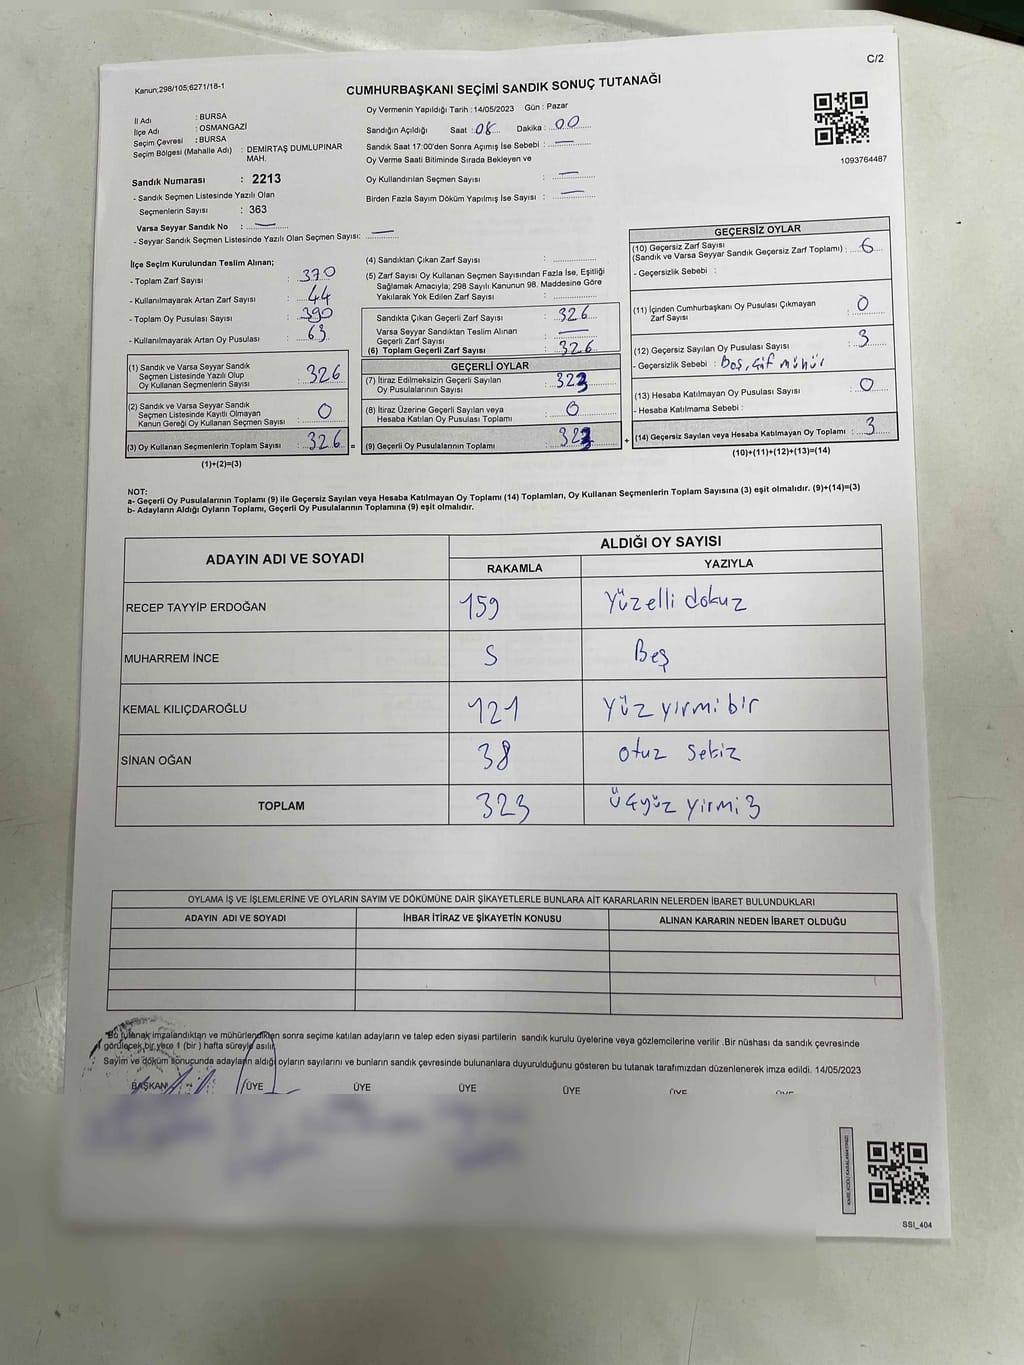 C/2
Kanun;298/105;6271/18-1
CUMHURBAŞKANI SEÇİMİ SANDIK SONUÇ TUTANAĞI
İl Adı : BURSA
İlçe Adı : OSMANGAZİ
Seçim Çevresi : BURSA
Seçim Bölgesi (Mahalle Adı) : DEMİRTAŞ DUMLUPINAR MAH.
Oy Vermenin Yapıldığı Tarih : 14/05/2023 Gün : Pazar
Sandığın Açıldığı Saat : 08 Dakika : 00
Sandık Saat 17:00'den Sonra Açımış İse Sebebi : —
Oy Verme Saati Bitiminde Sırada Bekleyen ve
Oy Kullandırılan Seçmen Sayısı : —
Birden Fazla Sayım Döküm Yapılmış İse Sayısı : —
1093764487
Sandık Numarası : 2213
- Sandık Seçmen Listesinde Yazılı Olan
Seçmenlerin Sayısı : 363
Varsa Seyyar Sandık No : —
- Seyyar Sandık Seçmen Listesinde Yazılı Olan Seçmen Sayısı: —
İlçe Seçim Kurulundan Teslim Alınan;
- Toplam Zarf Sayısı : 370
- Kullanılmayarak Artan Zarf Sayısı : 44
- Toplam Oy Pusulası Sayısı : 390
- Kullanılmayarak Artan Oy Pusulası : 63
(1) Sandık ve Varsa Seyyar Sandık
Seçmen Listesinde Yazılı Olup
Oy Kullanan Seçmenlerin Sayısı : 326
(2) Sandık ve Varsa Seyyar Sandık
Seçmen Listesinde Kayıtlı Olmayan
Kanun Gereği Oy Kullanan Seçmen Sayısı : 0
(3) Oy Kullanan Seçmenlerin Toplam Sayısı : 326 =
(1)+(2)=(3)
(4) Sandıktan Çıkan Zarf Sayısı :
(5) Zarf Sayısı Oy Kullanan Seçmen Sayısından Fazla İse, Eşitliği
Sağlamak Amacıyla; 298 Sayılı Kanunun 98. Maddesine Göre
Yakılarak Yok Edilen Zarf Sayısı :
Sandıkta Çıkan Geçerli Zarf Sayısı : 326
Varsa Seyyar Sandıktan Teslim Alınan
Geçerli Zarf Sayısı : —
(6) Toplam Geçerli Zarf Sayısı : 326
GEÇERLİ OYLAR
(7) İtiraz Edilmeksizin Geçerli Sayılan
Oy Pusulalarının Sayısı : 323
(8) İtiraz Üzerine Geçerli Sayılan veya
Hesaba Katılan Oy Pusulası Toplamı : 0
(9) Geçerli Oy Pusulalarının Toplamı : 323 +
GEÇERSİZ OYLAR
(10) Geçersiz Zarf Sayısı
(Sandık ve Varsa Seyyar Sandık Geçersiz Zarf Toplamı) : 6
- Geçersizlik Sebebi :
(11) İçinden Cumhurbaşkanı Oy Pusulası Çıkmayan
Zarf Sayısı : 0
(12) Geçersiz Sayılan Oy Pusulası Sayısı : 3
- Geçersizlik Sebebi : Boş, Çif Mühür
(13) Hesaba Katılmayan Oy Pusulası Sayısı : 0
- Hesaba Katılmama Sebebi :
(14) Geçersiz Sayılan veya Hesaba Katılmayan Oy Toplamı : 3
(10)+(11)+(12)+(13)=(14)
NOT:
a- Geçerli Oy Pusulalarının Toplamı (9) ile Geçersiz Sayılan veya Hesaba Katılmayan Oy Toplamı (14) Toplamları, Oy Kullanan Seçmenlerin Toplam Sayısına (3) eşit olmalıdır. (9)+(14)=(3)
b- Adayların Aldığı Oyların Toplamı, Geçerli Oy Pusulalarının Toplamına (9) eşit olmalıdır.
ADAYIN ADI VE SOYADI ALDIĞI OY SAYISI
RAKAMLA YAZIYLA
RECEP TAYYİP ERDOĞAN 159 Yüzelli dokuz
MUHARREM İNCE 5 Beş
KEMAL KILIÇDAROĞLU 121 Yüz yirmi bir
SİNAN OĞAN 38 Otuz Sekiz
TOPLAM 323 Üçyüz yirmi 3
OYLAMA İŞ VE İŞLEMLERİNE VE OYLARIN SAYIM VE DÖKÜMÜNE DAİR ŞİKAYETLERLE BUNLARA AİT KARARLARIN NELERDEN İBARET BULUNDUKLARI
ADAYIN ADI VE SOYADI İHBAR İTİRAZ VE ŞİKAYETİN KONUSU ALINAN KARARIN NEDEN İBARET OLDUĞU
Bu tutanak imzalandıktan ve mühürlendikten sonra seçime katılan adayların ve talep eden siyasi partilerin sandık kurulu üyelerine veya gözlemcilerine verilir .Bir nüshası da sandık çevresinde
görülecek bir yere 1 (bir ) hafta süreyle asılır.
Sayım ve döküm sonuçunda adayların aldığı oyların sayılarını ve bunların sandık çevresinde bulunanlara duyurulduğunu gösteren bu tutanak tarafımızdan düzenlenerek imza edildi. 14/05/2023
BAŞKAN ÜYE ÜYE ÜYE ÜYE ÜYE ÜYE
SSI_404